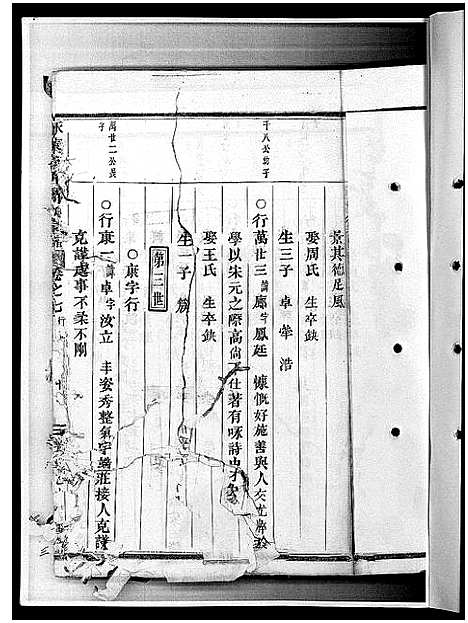 景其德足風
娶周氏 生卒缺
生三子 卓 犖 浩
千八公幼子
○行萬廿三 諱廊 字鳳廷 慷慨好施善與人交尤篤
學以宋元之際高尚不仕著有咏詩
娶王氏 生卒缺
生一子
第三世
○康字行
萬廿二公長子
○行康一 諱卓 字汝立 丰姿秀整氣宇端莊接人克謹
克謹處事不柔不剛
卷之七 行